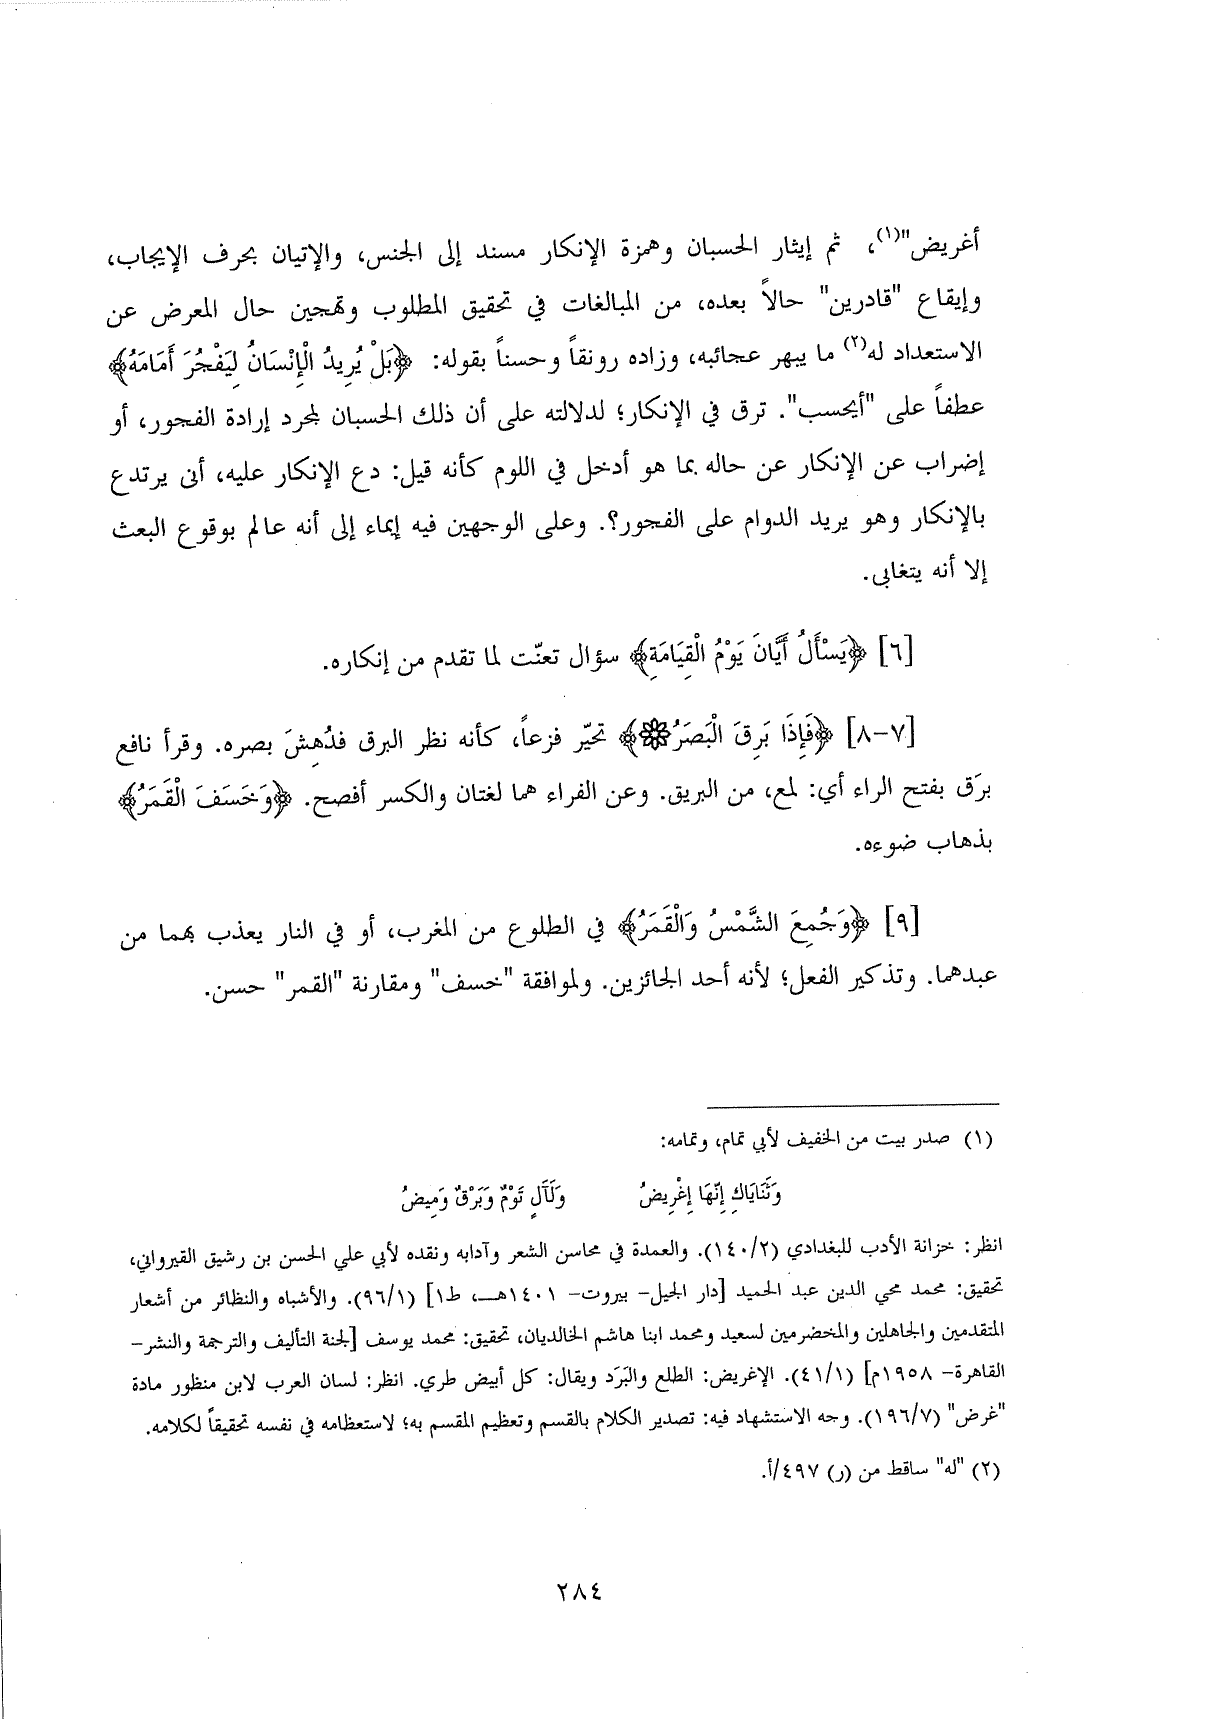 أغريض"(١)، ثم إيثار الحسبان وهمزة الإنكار مسند إلى الجنس، والإتيان بحرف الإيجاب،
وإيقاع "قادرين" حالاً بعده، من المبالغات في تحقيق المطلوب وتهجين حال المعرض عن
الاستعداد له(٢) ما يبهر عجائبه، وزاده رونقاً وحسناً بقوله: ﴿بَلْ يُرِيدُ الْإِنْسَانُ لِيَفْجُرَ أَمَامَهُ﴾
عطفاً على "أيحسب". ترق في الإنكار؛ لدلالته على أن ذلك الحسبان لمجرد إرادة الفجور، أو
إضراب عن الإنكار عن حاله بما هو أدخل في اللوم كأنه قيل: دع الإنكار عليه، أنى يرتدع
بالإنكار وهو يريد الدوام على الفجور؟. وعلى الوجهين فيه إيماء إلى أنه عالم بوقوع البعث
إلا أنه يتغابى.
[٦] ﴿يَسْأَلُ أَيَّانَ يَوْمُ الْقِيَامَةِ﴾ سؤال تعنّت لما تقدم من إنكاره.
[٧-٨] ﴿فَإِذَا بَرِقَ الْبَصَرُ۝﴾ تحيّر فزعاً، كأنه نظر البرق فدُهِشَ بصره. وقرأ نافع
برَق بفتح الراء أي: لمع، من البريق. وعن الفراء هما لغتان والكسر أفصح. ﴿وَخَسَفَ الْقَمَرُ﴾
بذهاب ضوءه.
[٩] ﴿وَجُمِعَ الشَّمْسُ وَالْقَمَرُ﴾ في الطلوع من المغرب، أو في النار يعذب بهما من
عبدهما. وتذكير الفعل؛ لأنه أحد الجائزين. ولموافقة "خسف" ومقارنة "القمر" حسن.
(١) صدر بيت من الخفيف لأبي تمام، وتمامه:
وَثَنَايَاكِ إِنّهَا إِغْرِيضُ وَلَآلٍ تَوْمٌ وَبَرْقٌ وَمِيضُ
انظر: خزانة الأدب للبغدادي (١٤٠/٢). والعمدة في محاسن الشعر وآدابه ونقده لأبي علي الحسن بن رشيق القيرواني،
تحقيق: محمد محي الدين عبد الحميد [دار الجيل- بيروت- ١٤٠١هـ، ط١] (٩٦/١). والأشباه والنظائر من أشعار
المتقدمين والجاهلين والمخضرمين لسعيد ومحمد ابنا هاشم الخالديان، تحقيق: محمد يوسف [لجنة التأليف والترجمة والنشر-
القاهرة- ١٩٥٨م] (٤١/١). الإغريض: الطلع والبَرَد ويقال: كل أبيض طري. انظر: لسان العرب لابن منظور مادة
"غرض" (١٩٦/٧). وجه الاستشهاد فيه: تصدير الكلام بالقسم وتعظيم المقسم به؛ لاستعظامه في نفسه تحقيقاً لكلامه.
(٢) "له" ساقط من (ر) ٤٩٧/أ.
٢٨٤